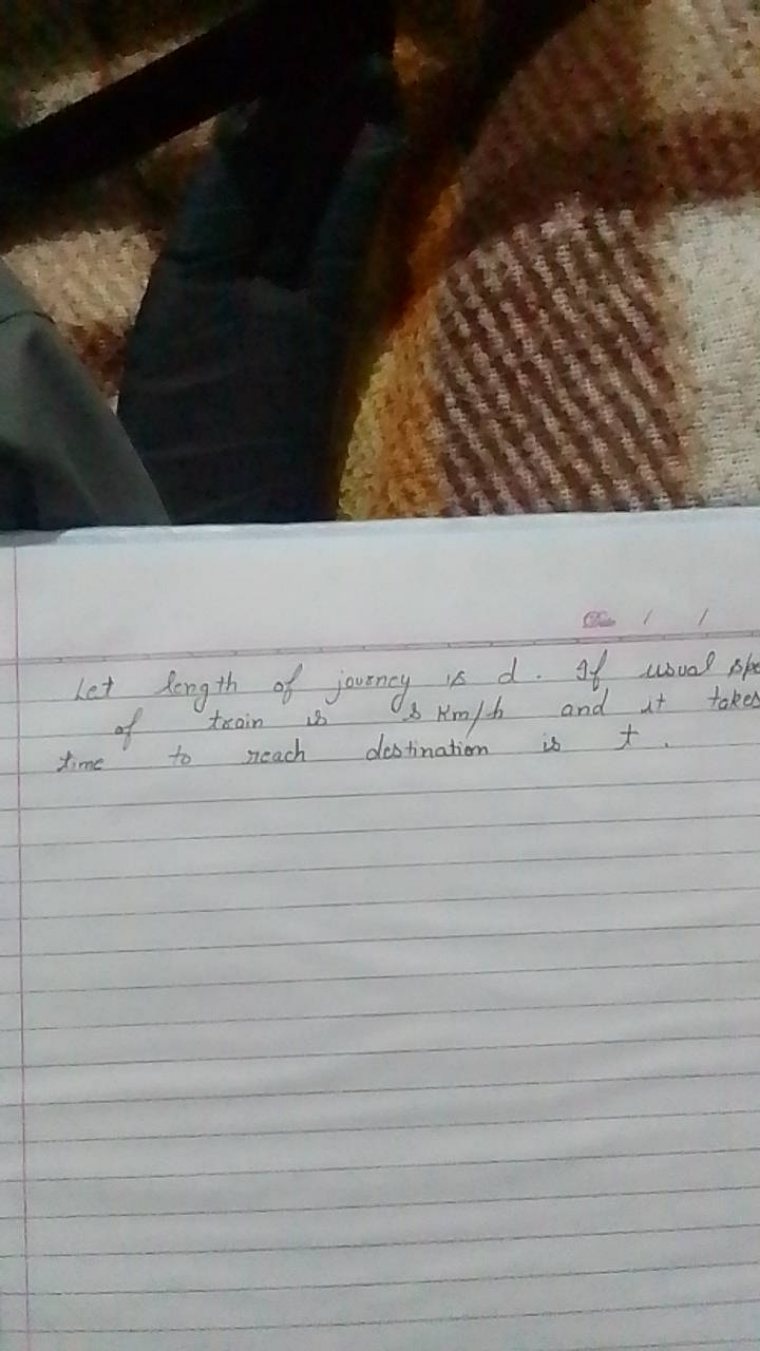 Let length of journey is d. If usual spe
of train is s Km/h and it takes
time to reach destination is t.